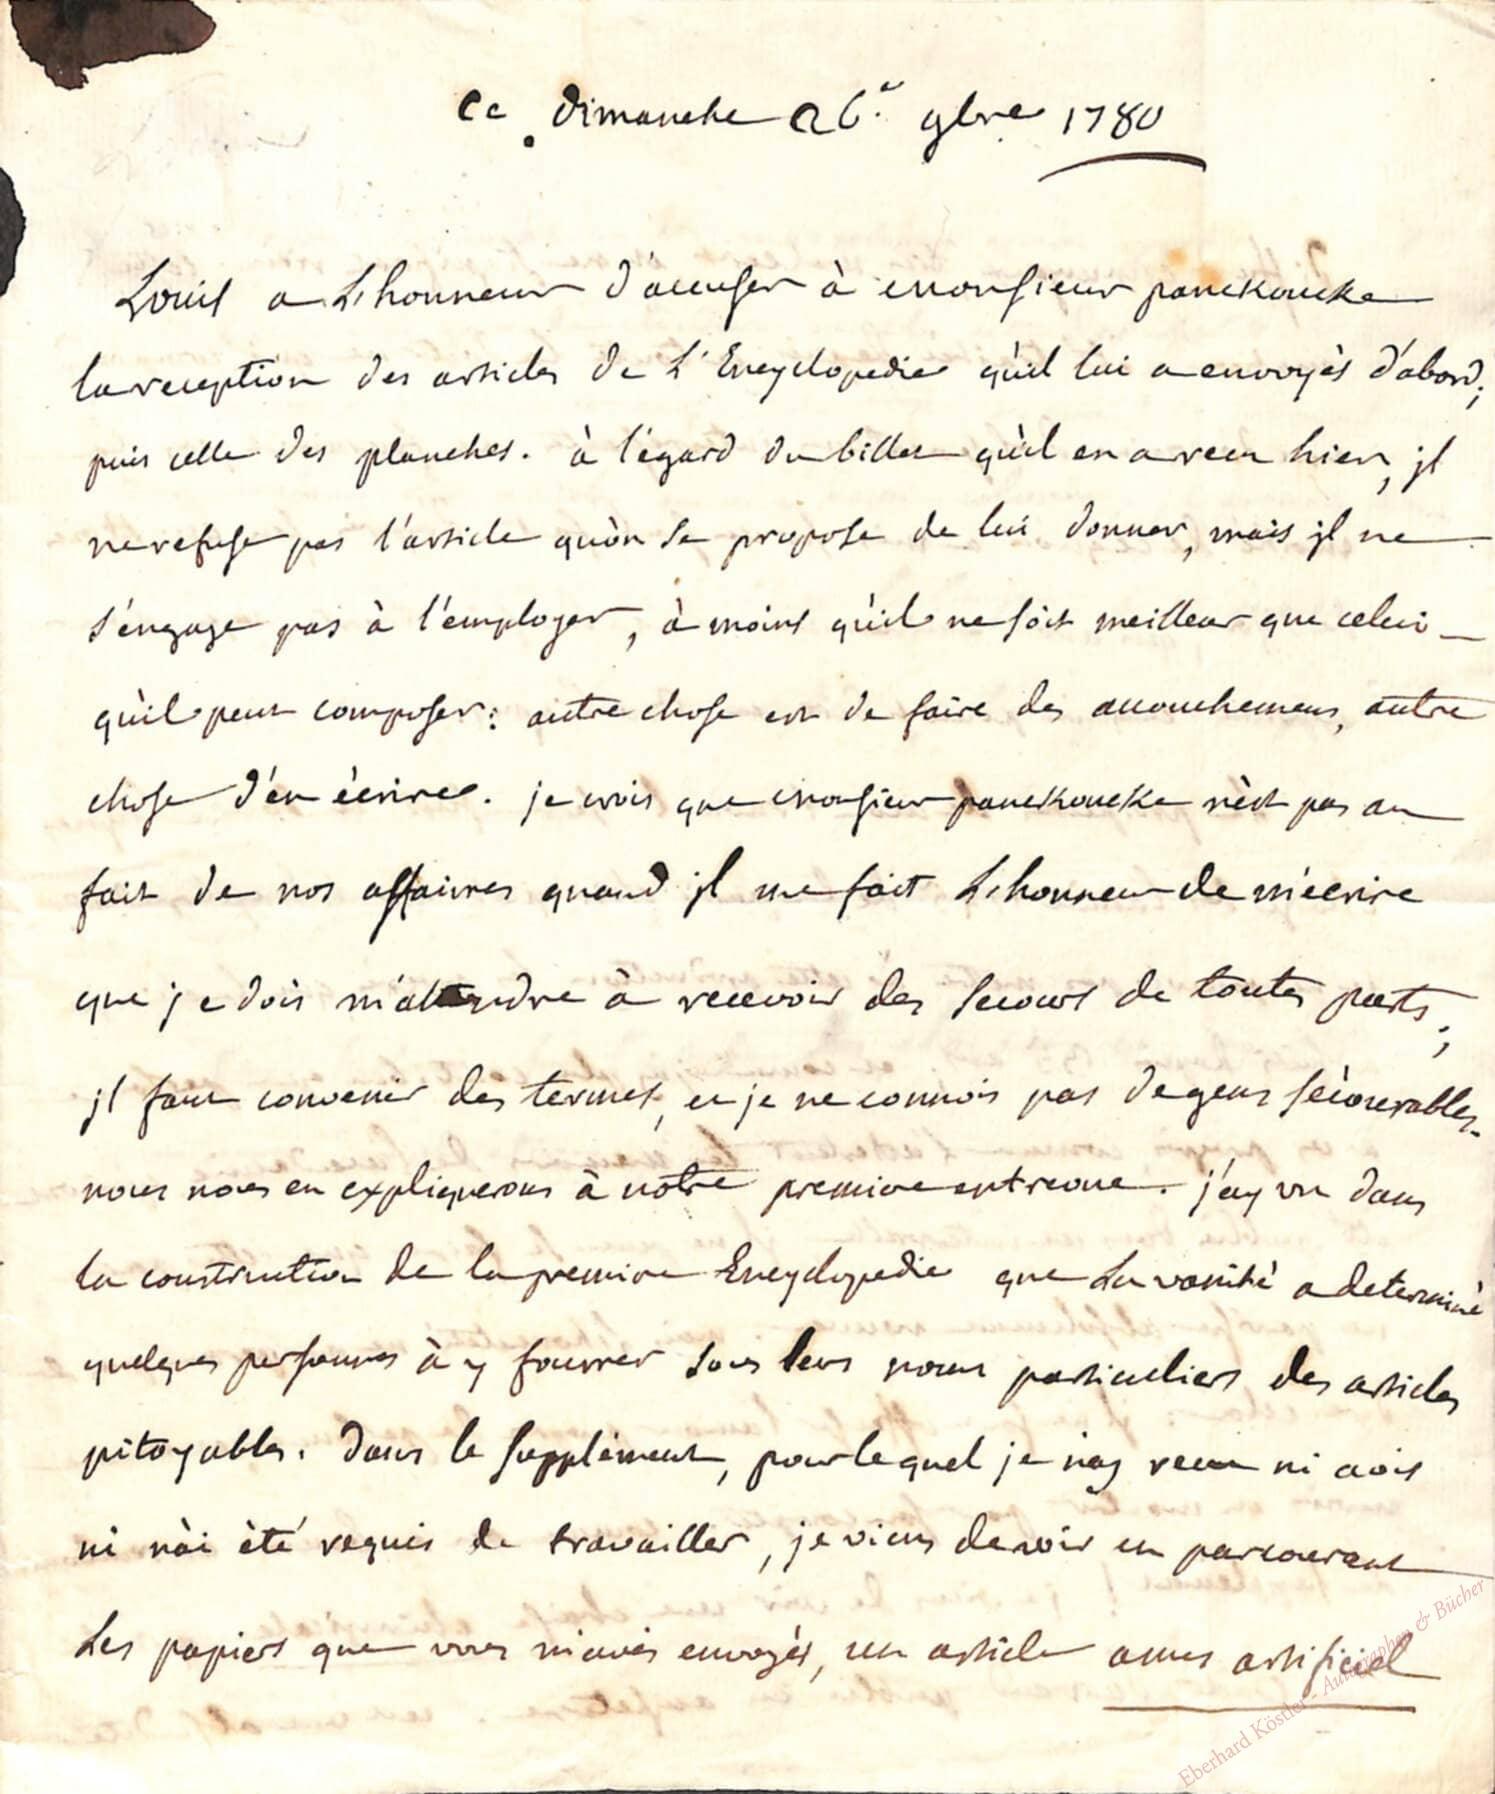 Ce Dimanche 26.e 9bre 1780
Louis a L'honneur d'accuser à monsieur panckoucke
la reception des articles de L'Encyclopedie qu'il lui a envoyés d'abord;
puis celle des planches. à l'égard du billet qu'il en a recu hier, jl
ne refuse pas l'article qu'on se propose de lui donner, mais jl ne
s'engage pas à l'employer, à moins qu'il ne soit meilleur que celui
qu'il peut composer: autre chose est de faire des accouchemens, autre
chose d'en écrire. je crois que monsieur panckoucke n'est pas au
fait de nos affaires quand jl me fait L'honneur de m'écrire
que je dois m'attendre à recevoir des secours de toutes parts;
jl faut convenir des termes, et je ne connois pas de gens sécourables.
nous nous en expliquerons à notre premiere entrevue. j'ay vu dans
la construction de la premiere Encyclopedie que La vanité a determiné
quelques personnes à y fourrer sous leurs noms particuliers des articles
pitoyables. dans le supplément, pour lequel je n'ay recu ni avis
ni n'ai été requis de travailler, je viens de voir en parcourant
Les papiers que vous m'avés envoyés, un article anus artificiel
Eberhard Köstler - Autographen & Bücher